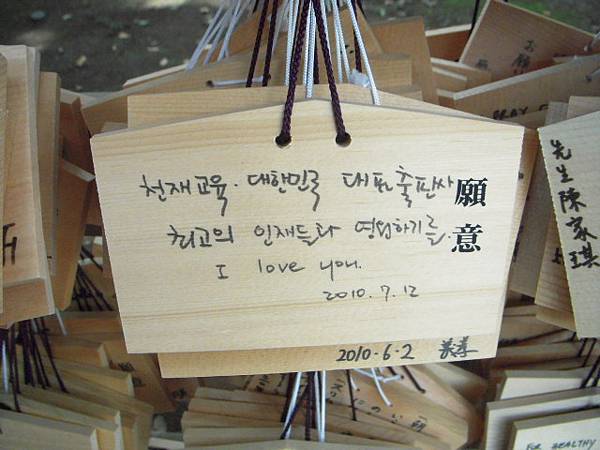 천재교육. 대한민국 대표출판사
최고의 인재들과 영업하기를.
I love you.
2010. 7. 12
願意
2010·6·2
先生陳家琪
FOR HEALTHY